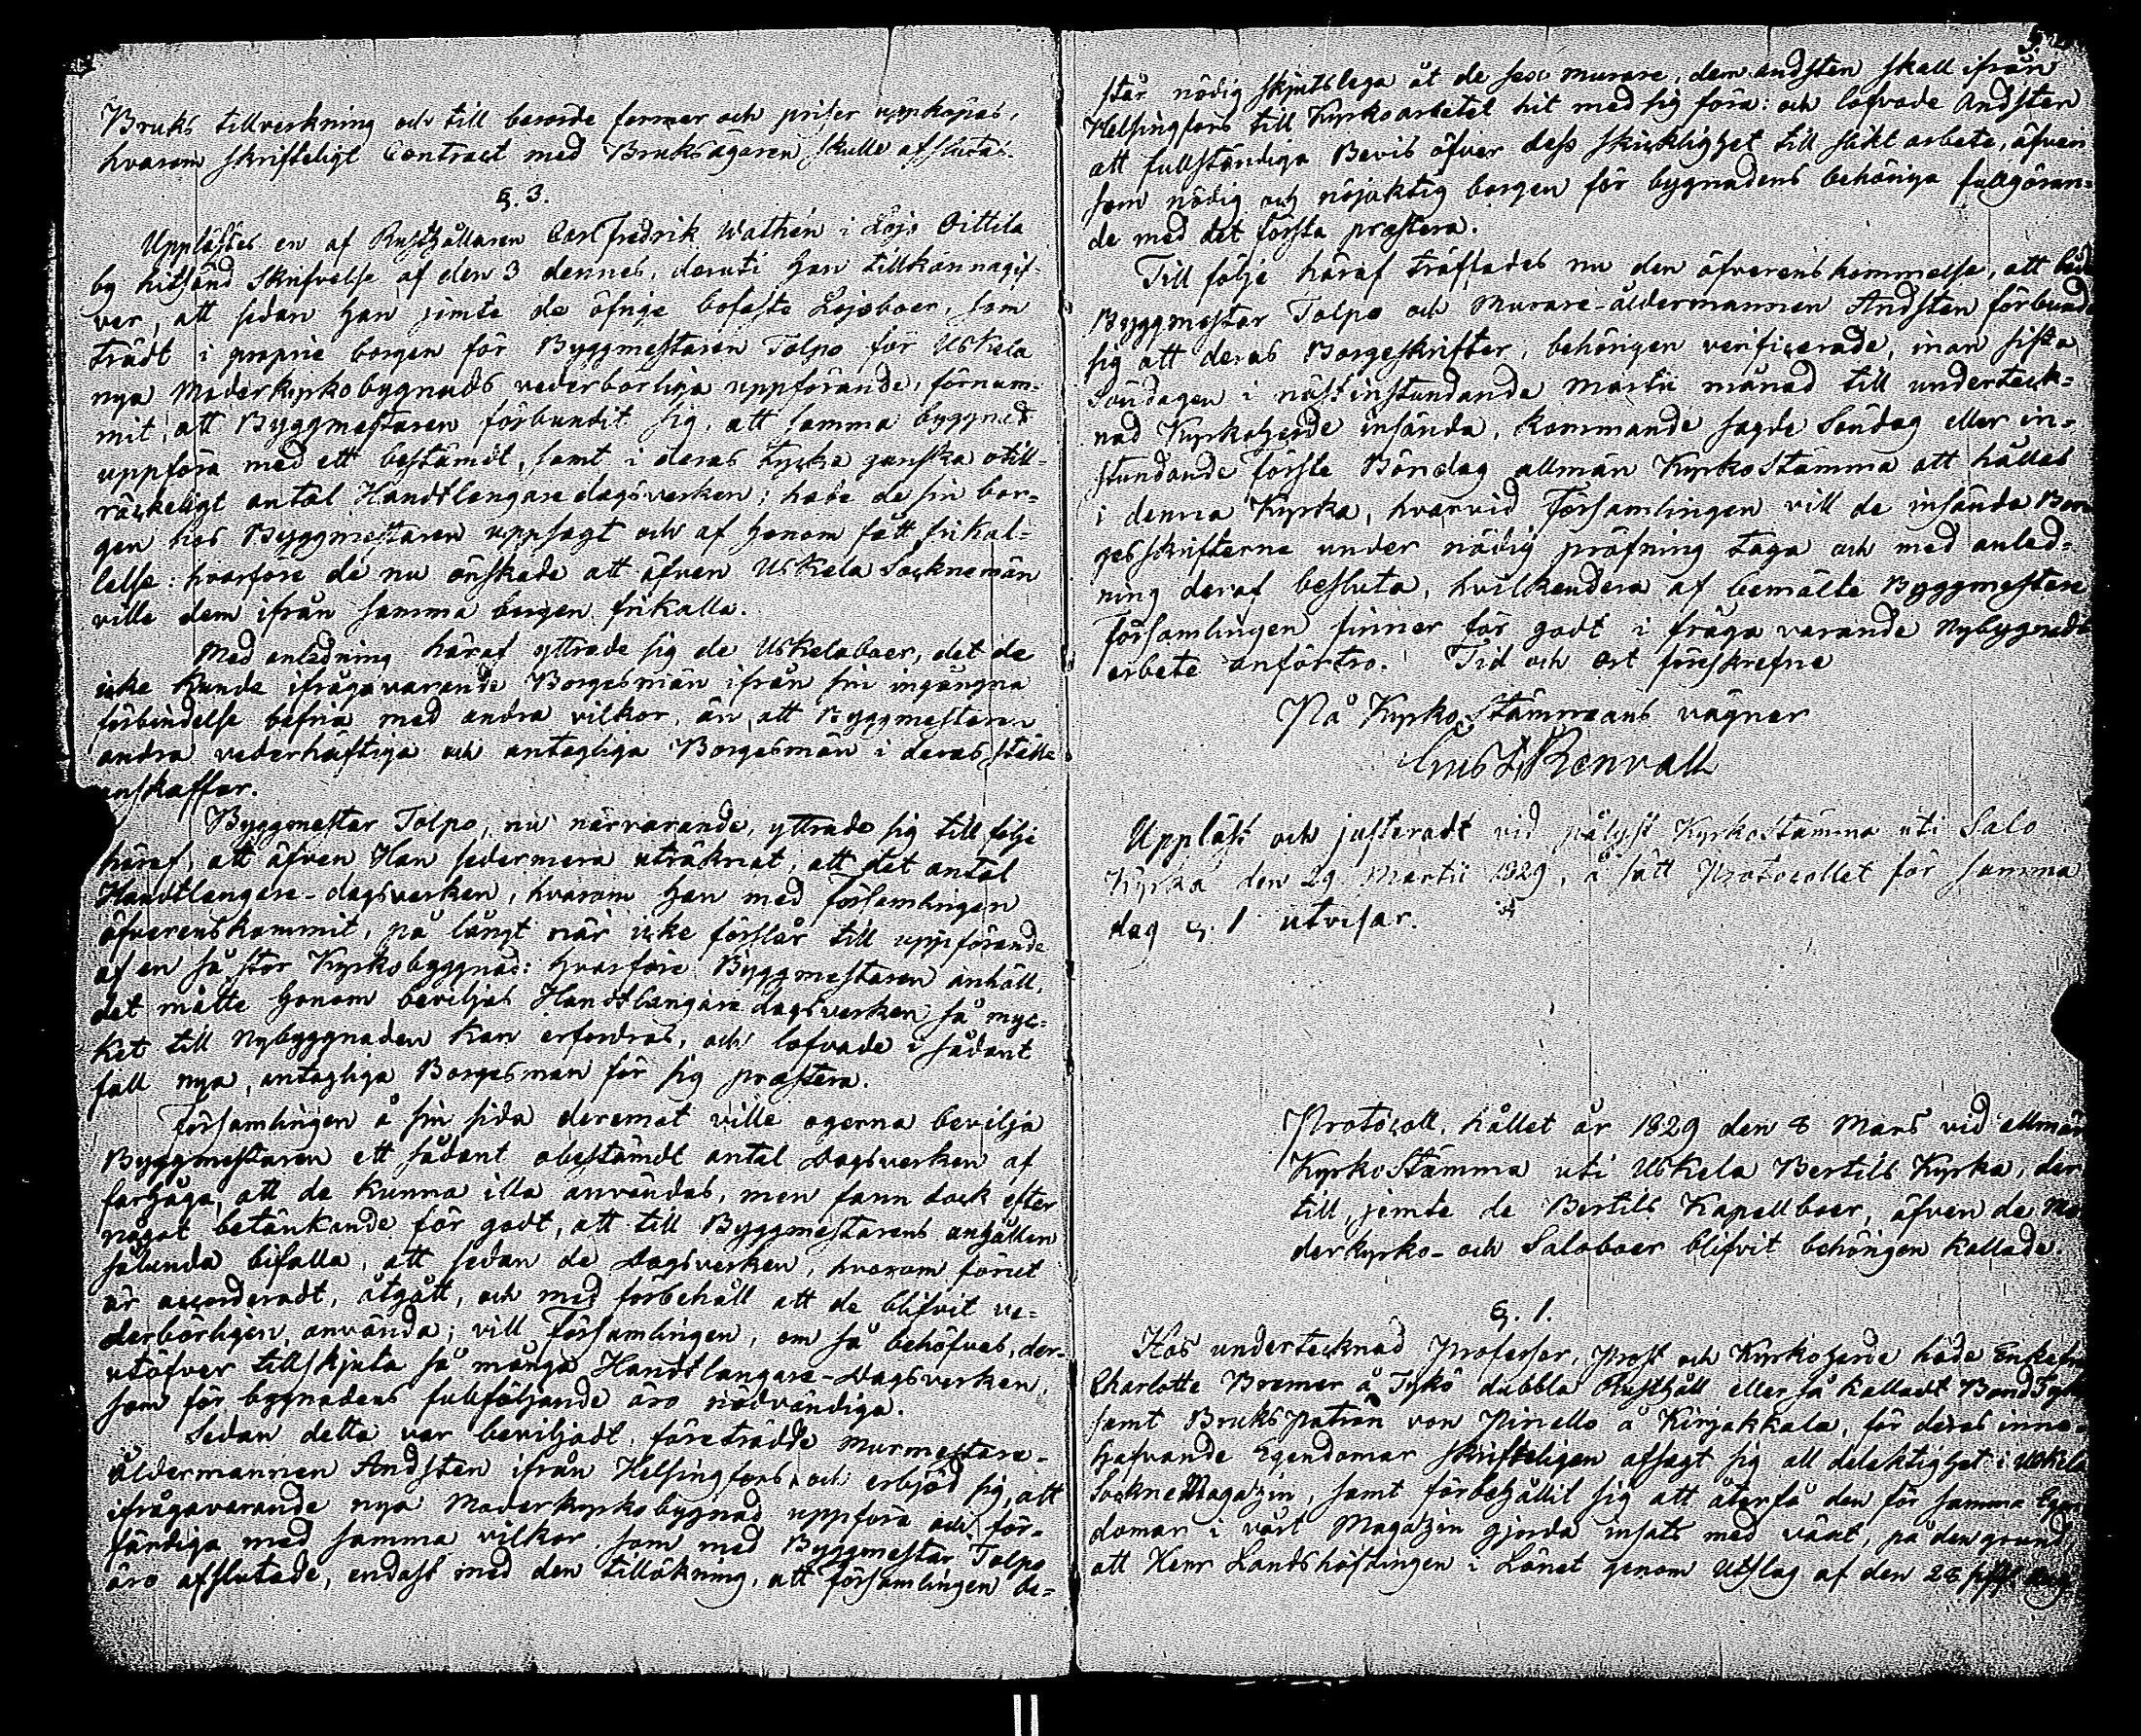 Bruks tillverkning och till berörde former och priser uppköpas,
hvarom skrifteligt Contract med Bruksägaren skulle afslutas.
§. 3.
Upplästes en af Rusthållaren Carl Fredrik Wathén i Lojo Oittila
by hitsänd Skrifvelse af den 3 dennes, deruti han tillkännagif-
ver, att sedan han jemte de öfrige bofaste Lojoboer, som
trädt i proprie borgen för Byggmestaren Tolpo för Uskela
nya Moderkyrkobygnads vederbörliga uppförande, förnum-
mit, att Byggmestaren förbundit sig, att samma byggnad
uppföra med ett bestämdt, samt i deras tycke ganska otill-
räckeligt antal Handtlangare dagsverken; hade de sin bor-
gen hos Byggmestaren uppsagt och af honom fått frikal-
lelse: hvarföre de nu önskade att äfven Uskela Socknemän
ville dem ifrån samma borgen frikalla.
Med anledning häraf yttrade sig de Uskelaboer, det de
icke kunde ifrågavarande Borgesmän ifrån sin ingångna
förbindelse befria med andra vilkor, än att Byggmestaren
andra vederhäftiga och antagliga Borgesmän i deras ställe
anskaffar.
Byggmestar Tolpo, nu närvarande, yttrade sig till följe
häraf, att äfven Han sedermera uträknat, att det antal
Handtlangare-dagsverken, hvarom han med församlingen
öfverenskommit, på långt när icke förslår till uppförande
af en så stor Kyrkobyggnad: hvarföre Byggmestaren anhöll,
det måtte honom beviljas Handtlangare dagsverken så myc-
ket till Nybyggnaden kan erfordras, och lofvade i sådant
fall nya, antagliga Borgesmän för sig præstera.
Församlingen å sin sida deremot ville ogerna bevilja
Byggmestaren ett sådant obestämdt antal Dagsverken af
farhåga, att de kunna illa användas, men fann dock efter
något betänkande för godt, att till Byggmestarens anhållan
sålunda bifalla, att sedan de Dagsverken, hvarom förut
är accorderadt, åtgått, och med förbehåll att de blifvit ve-
derbörligen använda; vill Församlingen, om så behöfves, der-
utöfver tillskjuta så många Handtlangare-Dagsverken,
som för bygnadens fullföljande äro nödvändiga.
Sedan detta var beviljadt, företrädde Murmestare-
åldermannen Andsten ifrån Helsingfors och erbjöd sig, att
ifrågavarande nya Moderkyrkobygnad uppföra och för-
färdiga med samma vilkor, som med Byggmestar Tolpo
äro afslutade, endast med den tillökning, att församlingen be-
står nödig skjutslega åt de sex murare, dem Andsten skall ifrån
Helsingfors till Kyrkoarbetet hit med sig föra: och lofvade Andsten
att fullständiga Bevis öfver dess skicklighet till slikt arbete, äfven
som nödig och nöjaktig borgen för bygnadens behöriga fullgöran-
de med det första præstera.
Till följe häraf träffades nu den öfverenskommelse, att både
Byggmestar Tolpo och Murare-åldermannen Andsten förbundo
sig att deras Borgeskrifter, behörigen verificerade, inom sista
Söndagen i nästinstundande Martii månad till underteck-
nad Kyrkoherde insända, kommande sagde Söndag eller in-
stundande förste Böndag allmän Kyrkostämma att hållas
i denna Kyrka, hvarvid Församlingen vill de insände Bor-
gesskrifterne under nödig pröfning taga och med anled-
ning deraf besluta, hvilkendera af bemälte Byggmestare
Församlingen finner för godt i fråga varande Nybygnads
arbete anförtro. Tid och ort föreskrefne
På KyrkoStämmans vägner
Gust. Renvall
Uppläst och justeradt vid pålyst KyrkoStämma uti Salo
Kyrka den 29 Martii 1829, å sätt Protocollet för samma
dag §. 1 utvisar.
Protocoll, hållet år 1829 den 8 Mars vid allmän
KyrkoStämma uti Uskela Bertils Kyrka, der-
till, jemte de Bertils Kapellboer, äfven de Mo-
derkyrko- och Saloboer blifvit behörigen kallade.
§. 1.
Hos undertecknad Professor, Prost och Kyrkoherde hade Enkefru
Charlotte Bremer å Tykö dubbla Rusthåll eller så kalladt
samt Bruks Patron von Pinello å Kirjakkala, för deras inne-
hafvande Egendomar skrifteligen afsagt sig all delaktighet i Uskela
SockneMagazin, samt förbehållit sig att återfå den för samma Egen-
domar i vårt Magazin gjorda insats med växt, på den grund,
att Herr Landshöfdingen i Länet genom Utslag af den 28